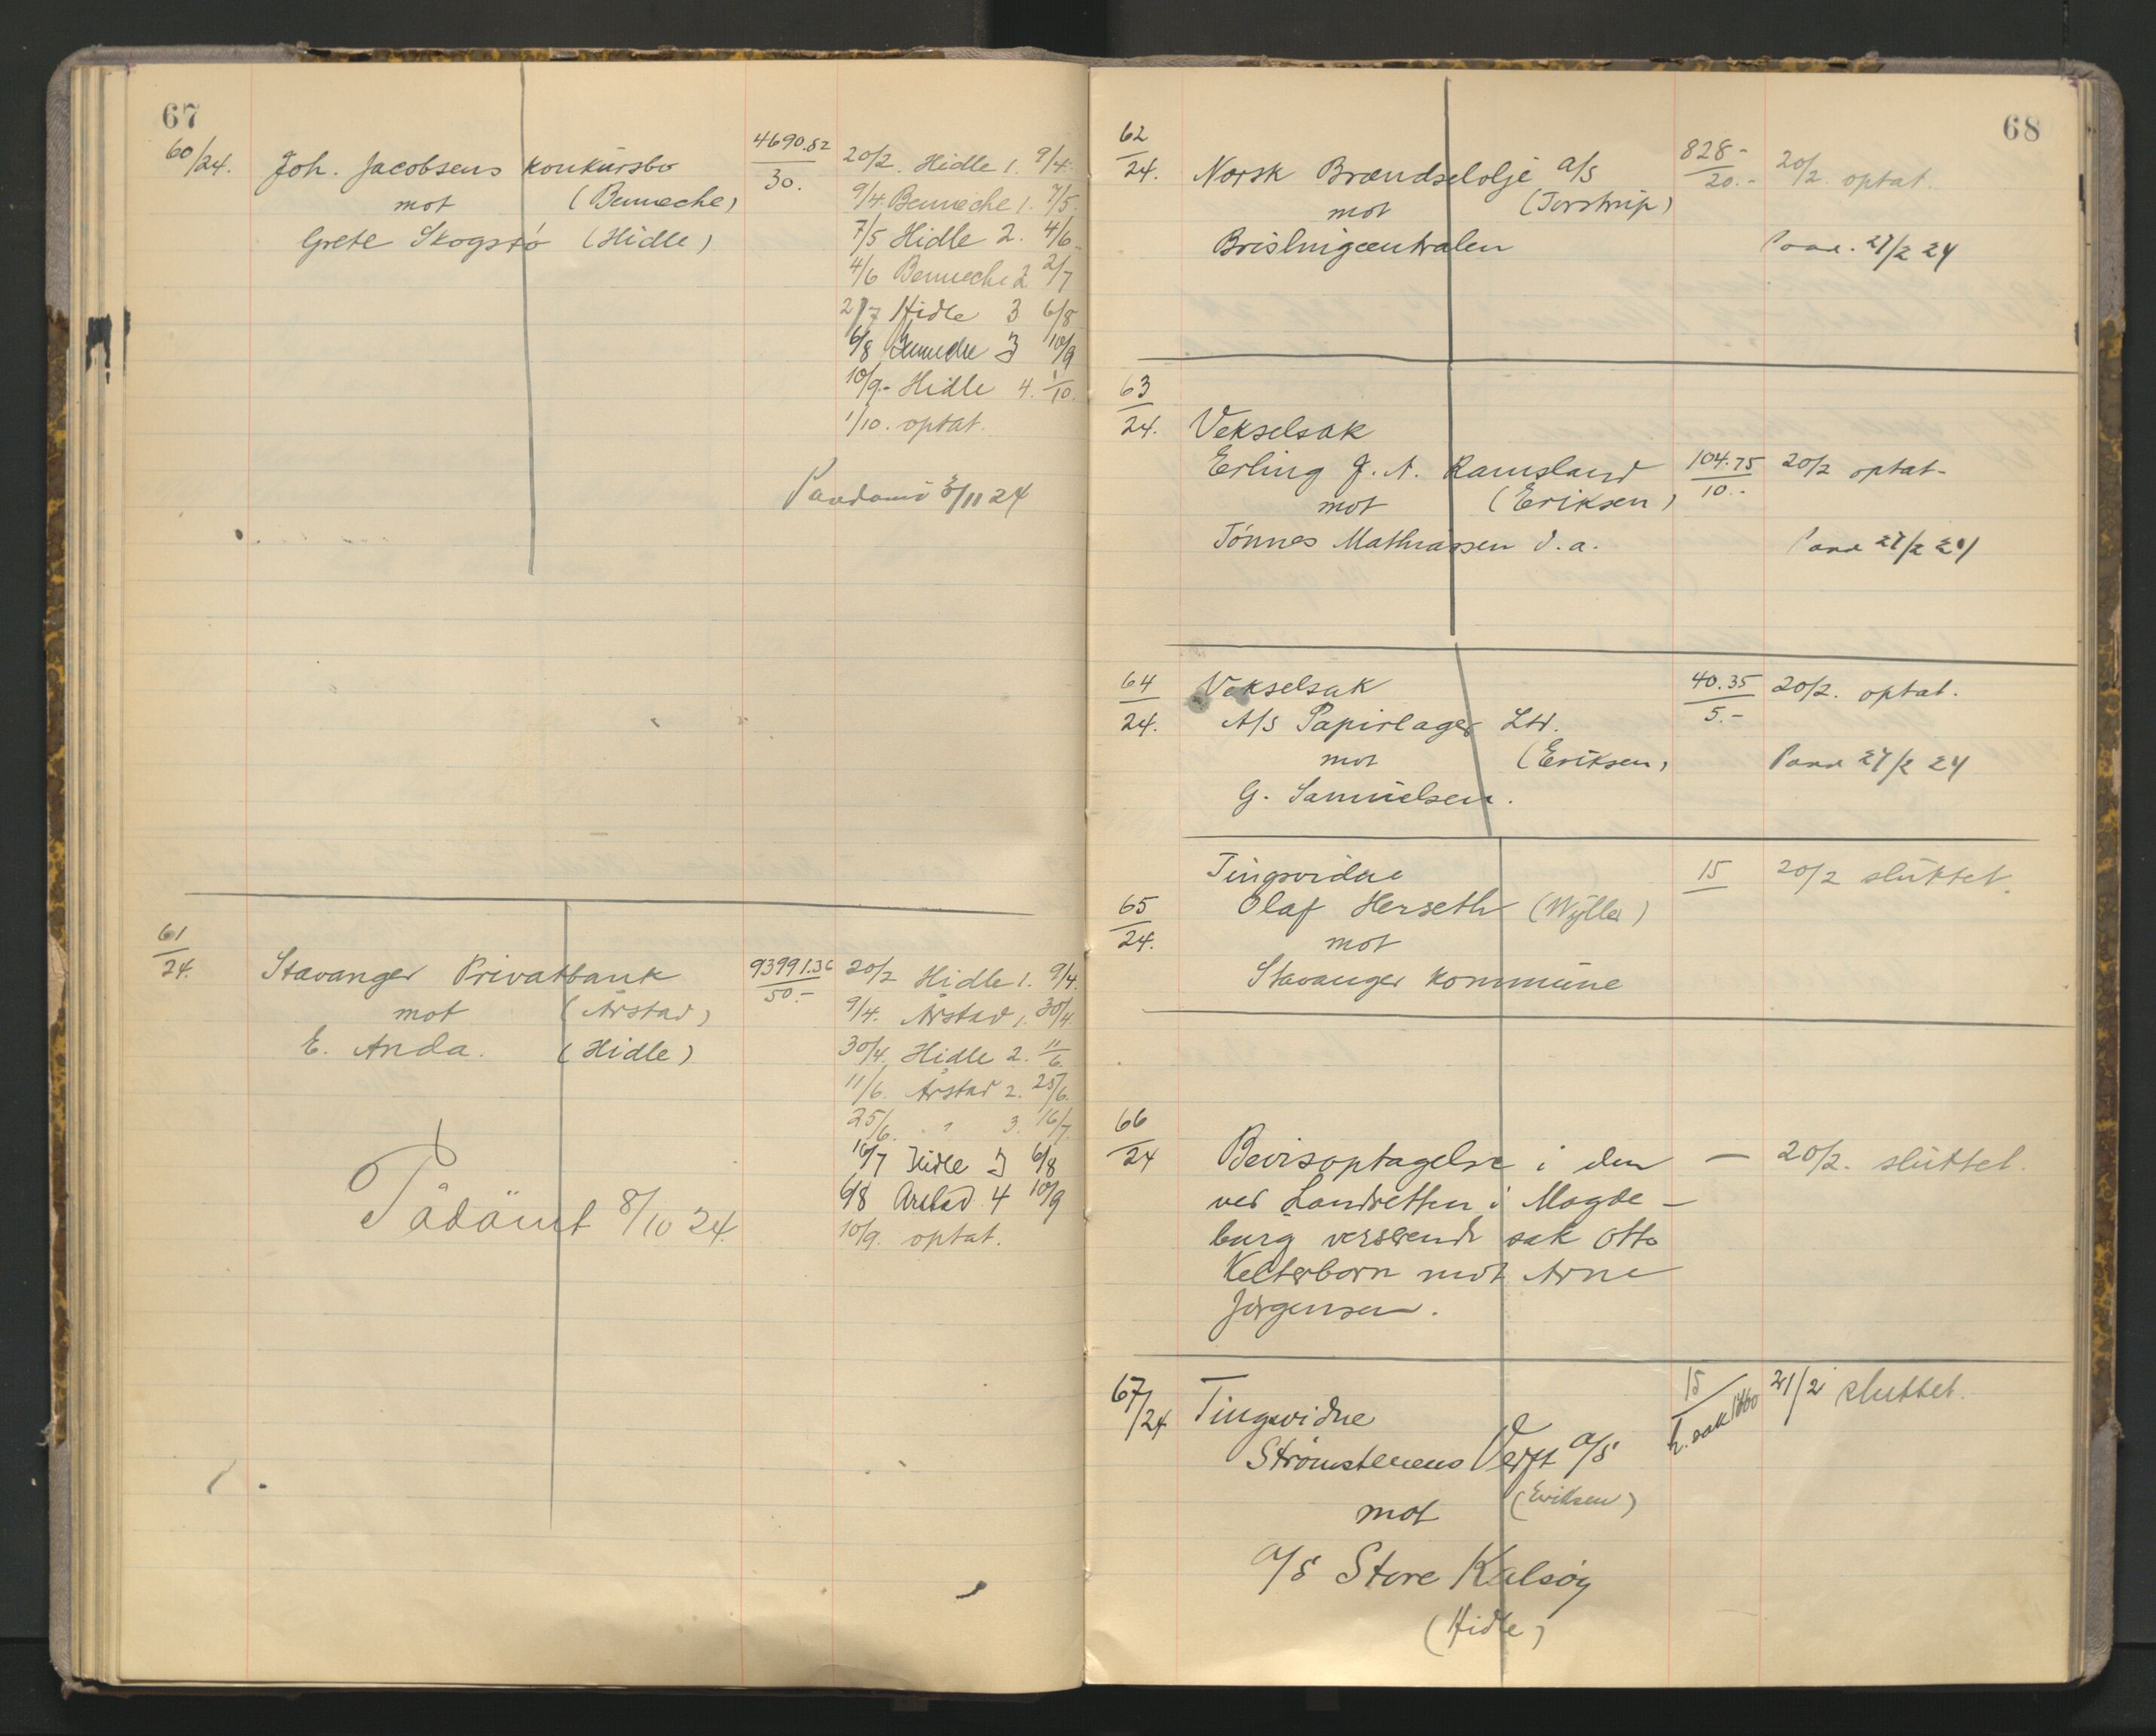 67
60/24. Joh. Jacobsens konkursbo 4690.82 20/2. Hidle 1. 9/4.
mot (Benneche) 30. 9/4 Benneche 1. 7/5.
Grete Skogstø (Hidle) 7/5 Hidle 2. 4/6.
4/6 Benneche 2 2/7
2/7 Hidle 3 6/8
6/8 Benneche 3 10/9
10/9. Hidle 4. 1/10.
1/10. optat.
Paadømt 5/11 24
61/24. Stavanger Privatbank 93991.36 20/2 Hidle 1. 9/4.
mot (Årstad) 50.- 9/4. Årstad 1. 30/4.
E. Anda. (Hidle) 30/4. Hidle 2. 11/6.
11/6. Årstad 2. 25/6.
25/6. " 3. 16/7.
16/7 Hidle 3 6/8
6/8 Arstad 4 10/9
Pådömt 8/10 24. 10/9. optat.
68
62/24. Norsk Brændselolje A/S 828- 20/2. optat.
mot (Torstrup) 20.-
Brislingcentralen Paad. 27/2 24
63/24. Vekselsak
Erling J. A. Ramsland 104.75 20/2 optat-
mot (Eriksen) 10.-
Tønnes Mathiassen o. a. Paad 27/2 24
64/24. Vekselsak 40.35 20/2. optat.
A/S Papirlager 5.-
mot (Eriksen) Paad 27/2 24
G. Samuelsen.
Tingsvidne 15 20/2 sluttet.
65/24. Olaf Herseth (Wyller)
mot
Stavanger kommune
66/24 Bevisoptagelse i den — 20/2. sluttet.
ved Landretten i Magde-
burg verserende sak Otto
Kelterborn mot Arne
Jørgensen.
67/24 Tingsvidne 15 21/2 sluttet.
Strømstenens Verft A/S
mot (Eriksen)
A/S Store Kalsøy
(Hidle)